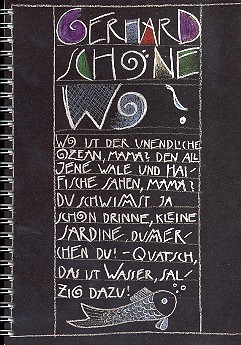 GERHARD
SCHÖNE
WO?
WO IST DER UNENDLICHE
OZEAN, MAMA? DEN ALL
JENE WALE UND HAI-
FISCHE SAHEN, MAMA?
DU SCHWIMST JA
SCHON DRINNE, KLEINE
SARDINE. DUMER-
CHEN DU! - QUATSCH,
DAS IST WASSER, SAL-
ZIG DAZU!